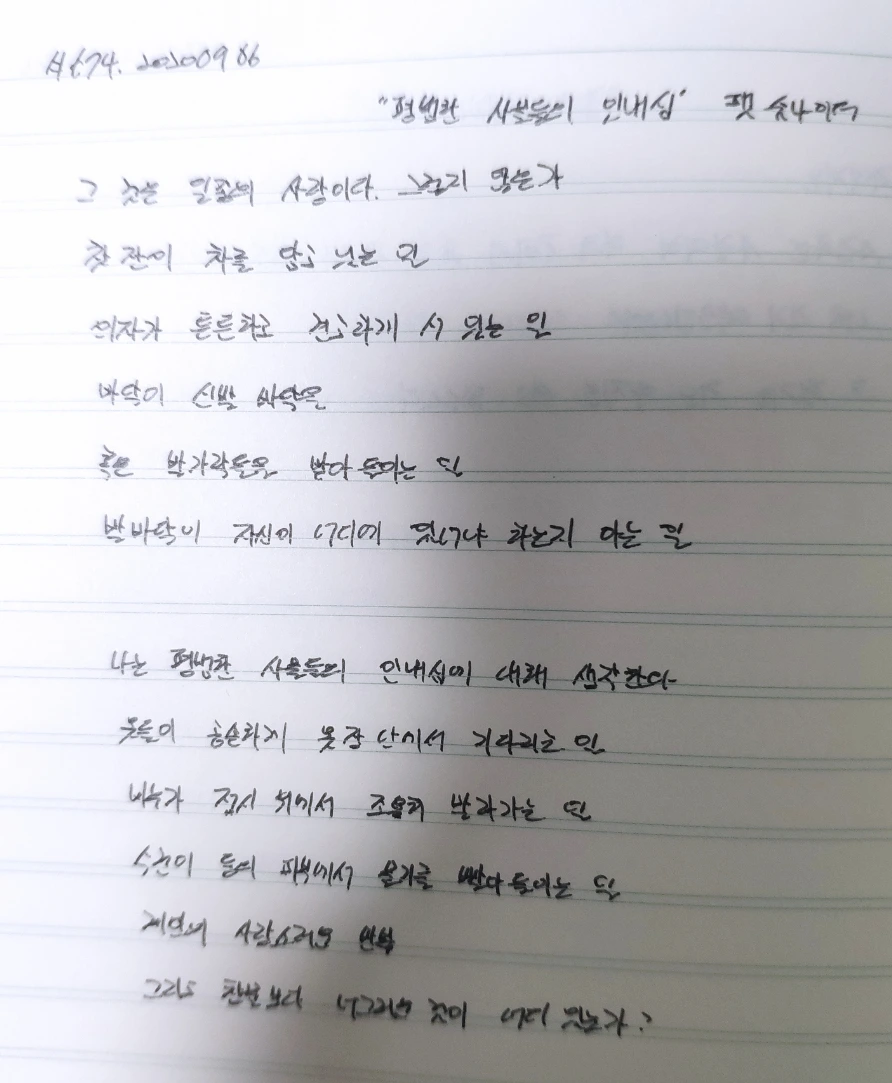 시.74. 20200906
"평범한 사물들의 인내심" 팻 슈나이더
그 것은 일종의 사랑이다. 그렇지 않은가
찻 잔이 차를 담고 있는 일
의자가 튼튼하고 견고하게 서 있는 일
바닥이 신발 바닥을
혹은 발가락들을 받아들이는 일
발바닥이 자신이 어디에 있어야 하는지 아는 일
나는 평범한 사물들의 인내심에 대해 생각한다
옷들이 공손하게 옷장 안에서 기다리는 일
비누가 접시 위에서 조용히 말라가는 일
수건이 등의 피부에서 물기를 빨아들이는 일
계단의 사랑스러운 반복
그리고 창문보다 너그러운 것이 어디 있는가?